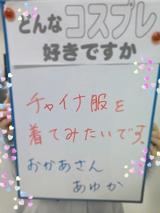 どんなコスプレ
好きですか
チャイナ服を
着てみたいです。
おかあさん
あゆか